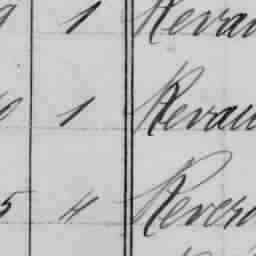 9 1 Revau
0 1 Revau
5 4 Rever